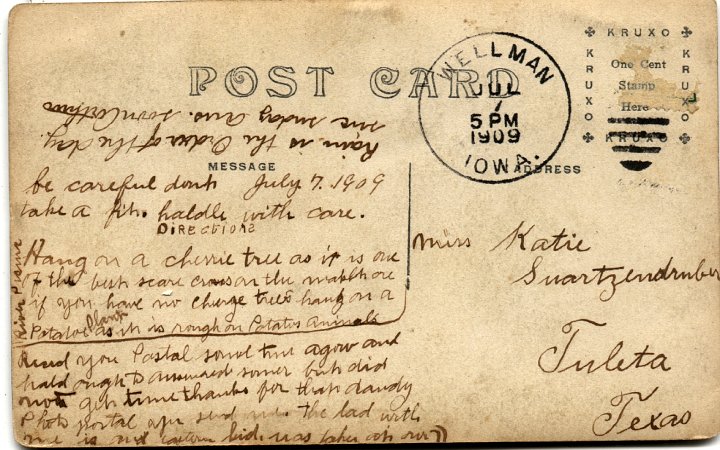 KRUXO
KRUXO
KRUXO
KRUXO
One Cent
Stamp
Here
POST CARD
WELLMAN
JUL
7
5 PM
1909
IOWA.
Rain is the Order of the day.
MESSAGE
ADDRESS
be careful dont July 7. 1909
take a fit. haldle with care.
Directions
Hang on a cherrie tree as it is one
of the best scare crows on the
if you have no tree hang on a
Potatoe Plant as it is rough on Potatos animals
you Postal some time agow and
ought to sooner but did
not get time thanks for that dandy
Photo postal send me. The lad with
me is
River
Miss Katie
Swartzendruber
Tuleta
Texas